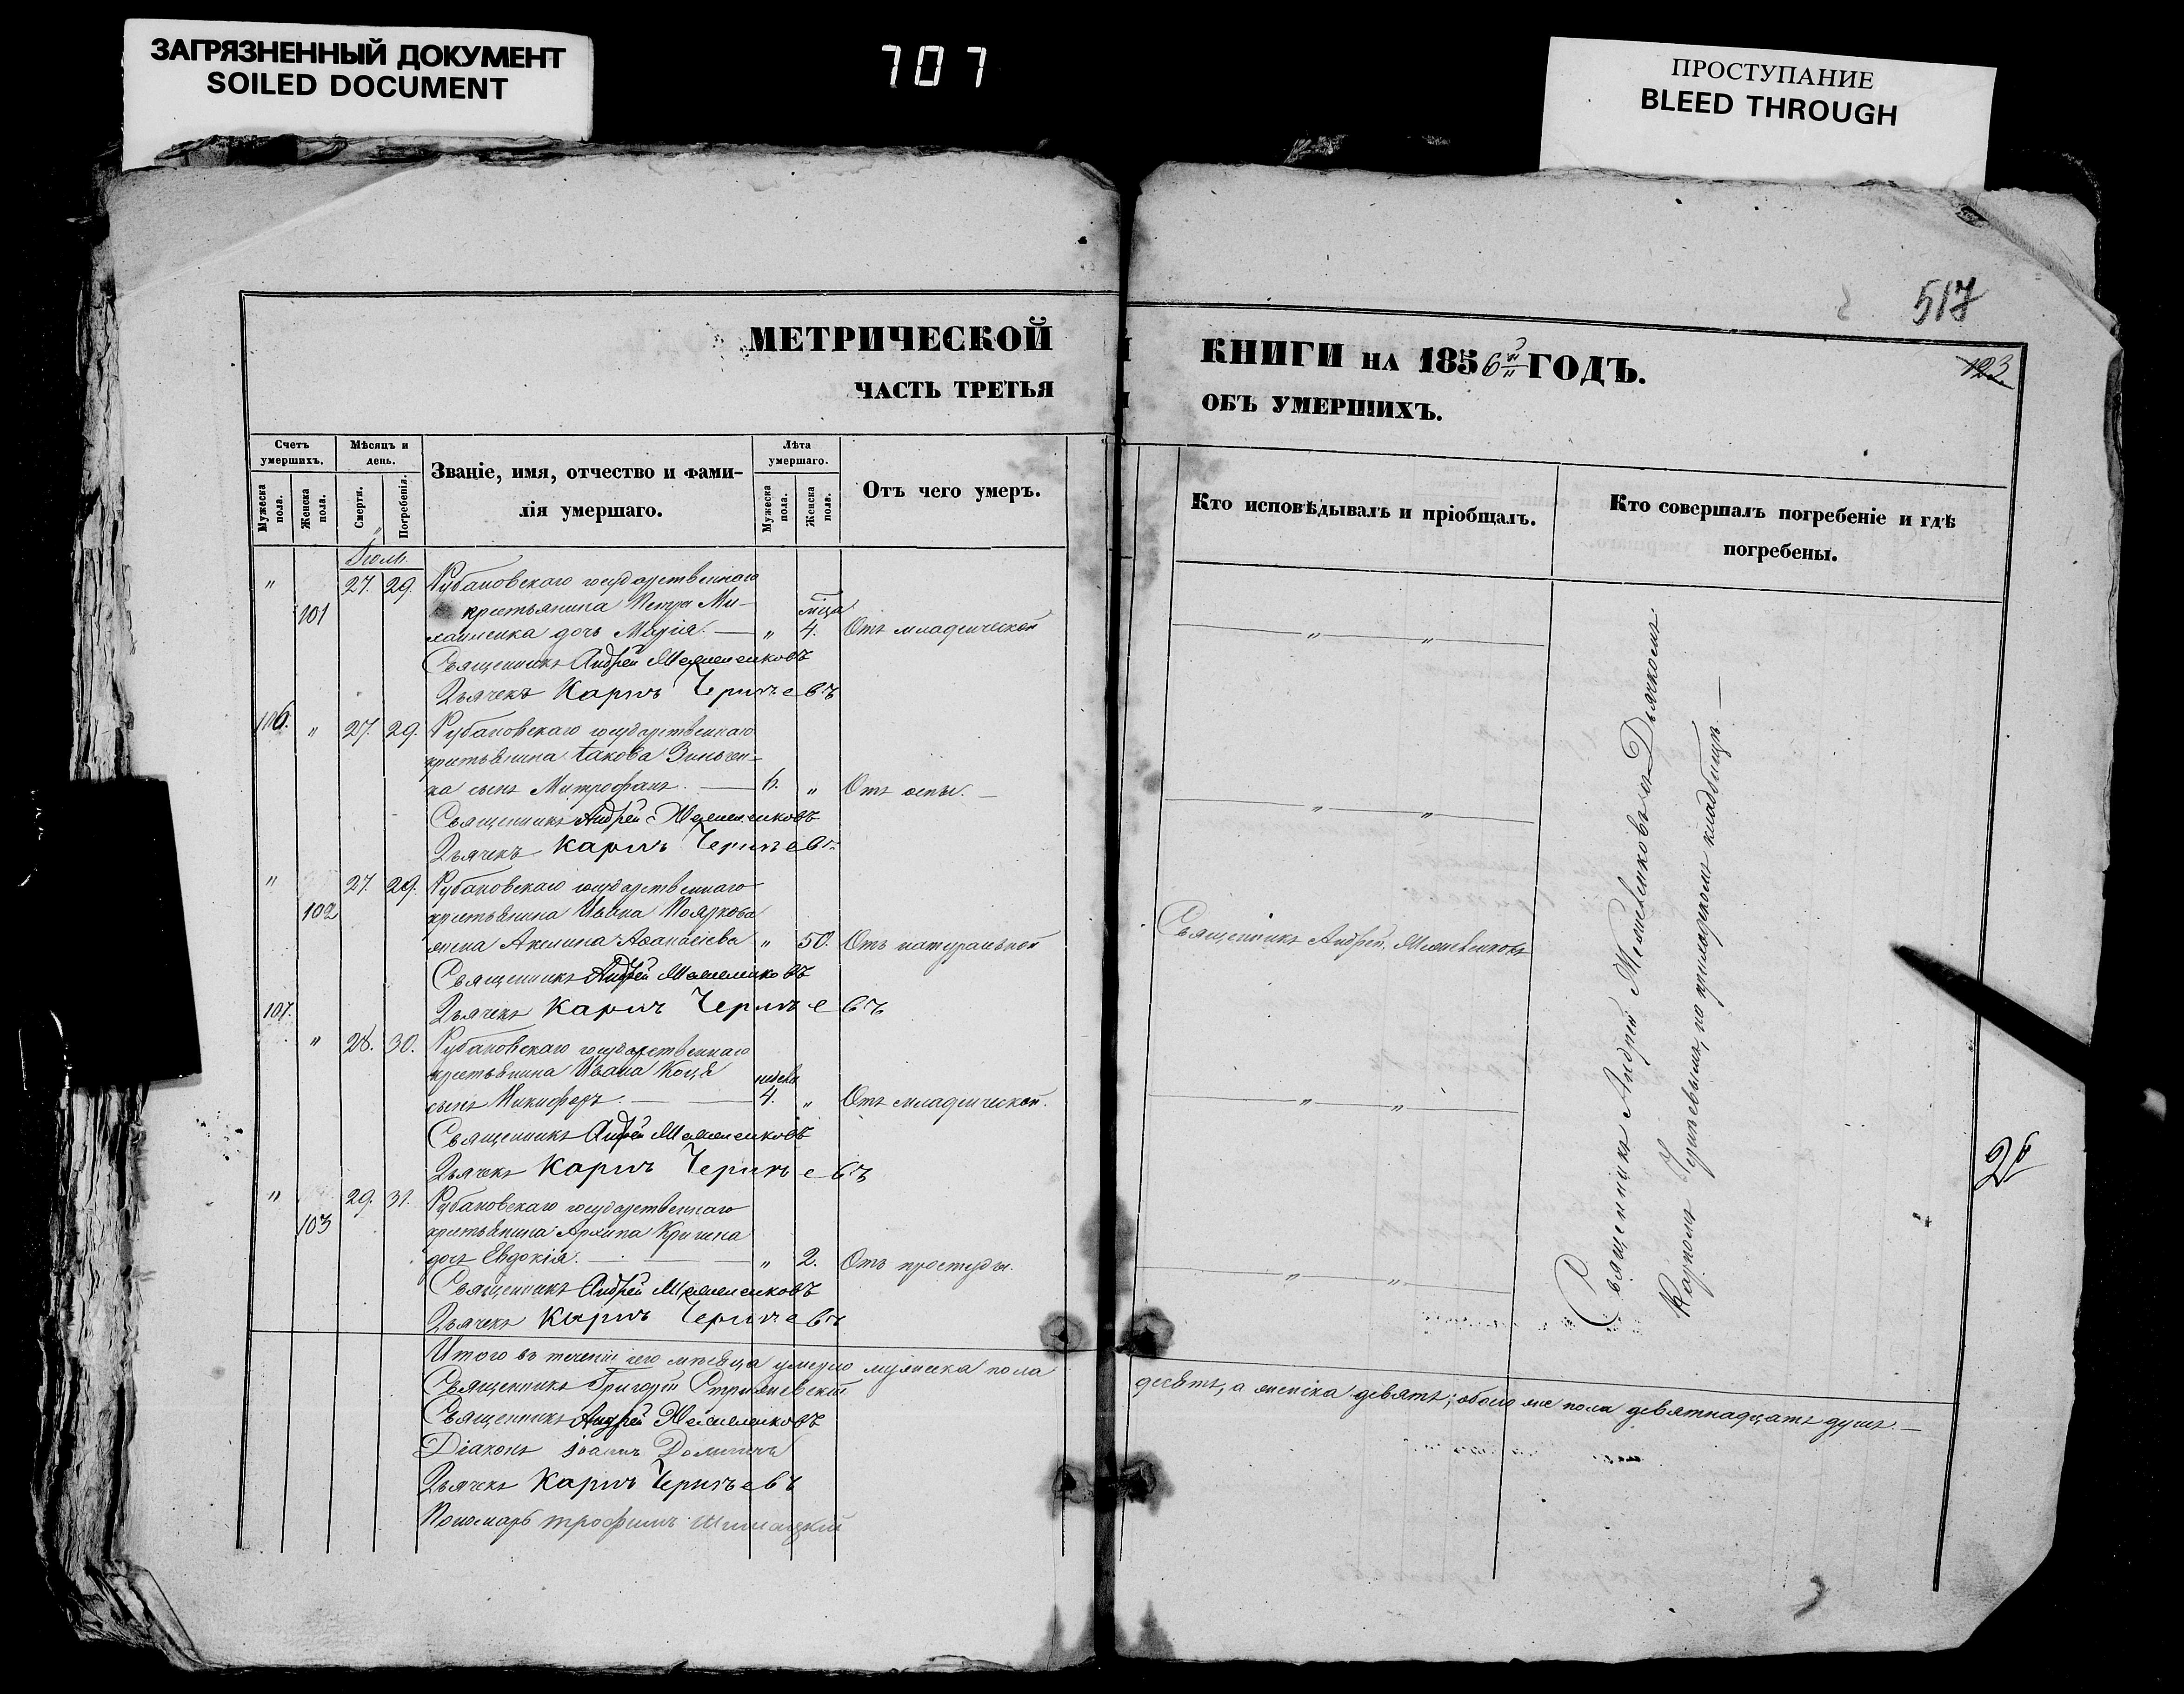 ЗАГРЯЗНЕННЫЙ ДОКУМЕНТ
SOILED DOCUMENT
707
ПРОСТУПАНИЕ
BLEED THROUGH
517
123
МЕТРИЧЕСКОЙ
ЧАСТЬ ТРЕТЬЯ
КНИГИ НА 1856й ГОДЪ.
ОБЪ УМЕРШИХЪ.
Счетъ умершихъ.
Мужеска пола.
Женска пола.
Мѣсяцъ и день.
Смерти.
Погребенія.
Званіе, имя, отчество и фами-
лія умершаго.
Лѣта умершаго.
Мужеска пола.
Женска пола.
Отъ чего умеръ.
Кто исповѣдывалъ и пріобщалъ.
Кто совершалъ погребеніе и гдѣ
погребены.
Іюль.
" 27. 29. Рубановскаго государственнаго
101 крестьянина Петра Ми- мѣца
дочь Марія. — " 4. Отъ младенческой — " — " —
Священникъ Андрей
Дьячекъ Карпъ
106. " 27. 29. Рубановскаго государственнаго
крестьянина Іакова Зинчен-
ка сынъ Митрофанъ. — 6. " Отъ оспы. — " — " —
Священникъ Андрей
Дьячекъ Карпъ
" 27. 29. Рубановскаго государственнаго
102 крестьянина Ивана Пояркова
жена Акилина Аѳанасіева " 50. Отъ натуральной Священникъ Андрей
Священникъ Андрей
Дьячекъ Карпъ
107.
" 28. 30. Рубановскаго государственнаго
крестьянина Ивана Коця недели
сынъ Никифоръ. — 4. " Отъ младенческой. — " — " —
Священникъ Андрей
Дьячекъ Карпъ
" 29. 31. Рубановскаго государственнаго
103 крестьянина Архипа
дочь Евдокія. — " 2. Отъ простуды. — " — " —
Священникъ Андрей
Дьячекъ Карпъ
Священникъ Андрей и Дьячкомъ
Карпомъ на приходскомъ кладбищѣ. —
Итого въ теченіи сего мѣсяца умерло мужеска пола десять, а женска девять; обоего же пола девятнадцать душъ. —
Священникъ Григорій
Священникъ Андрей
Діаконъ Іоаннъ
Дьячекъ Карпъ
Пономарь Трофимъ